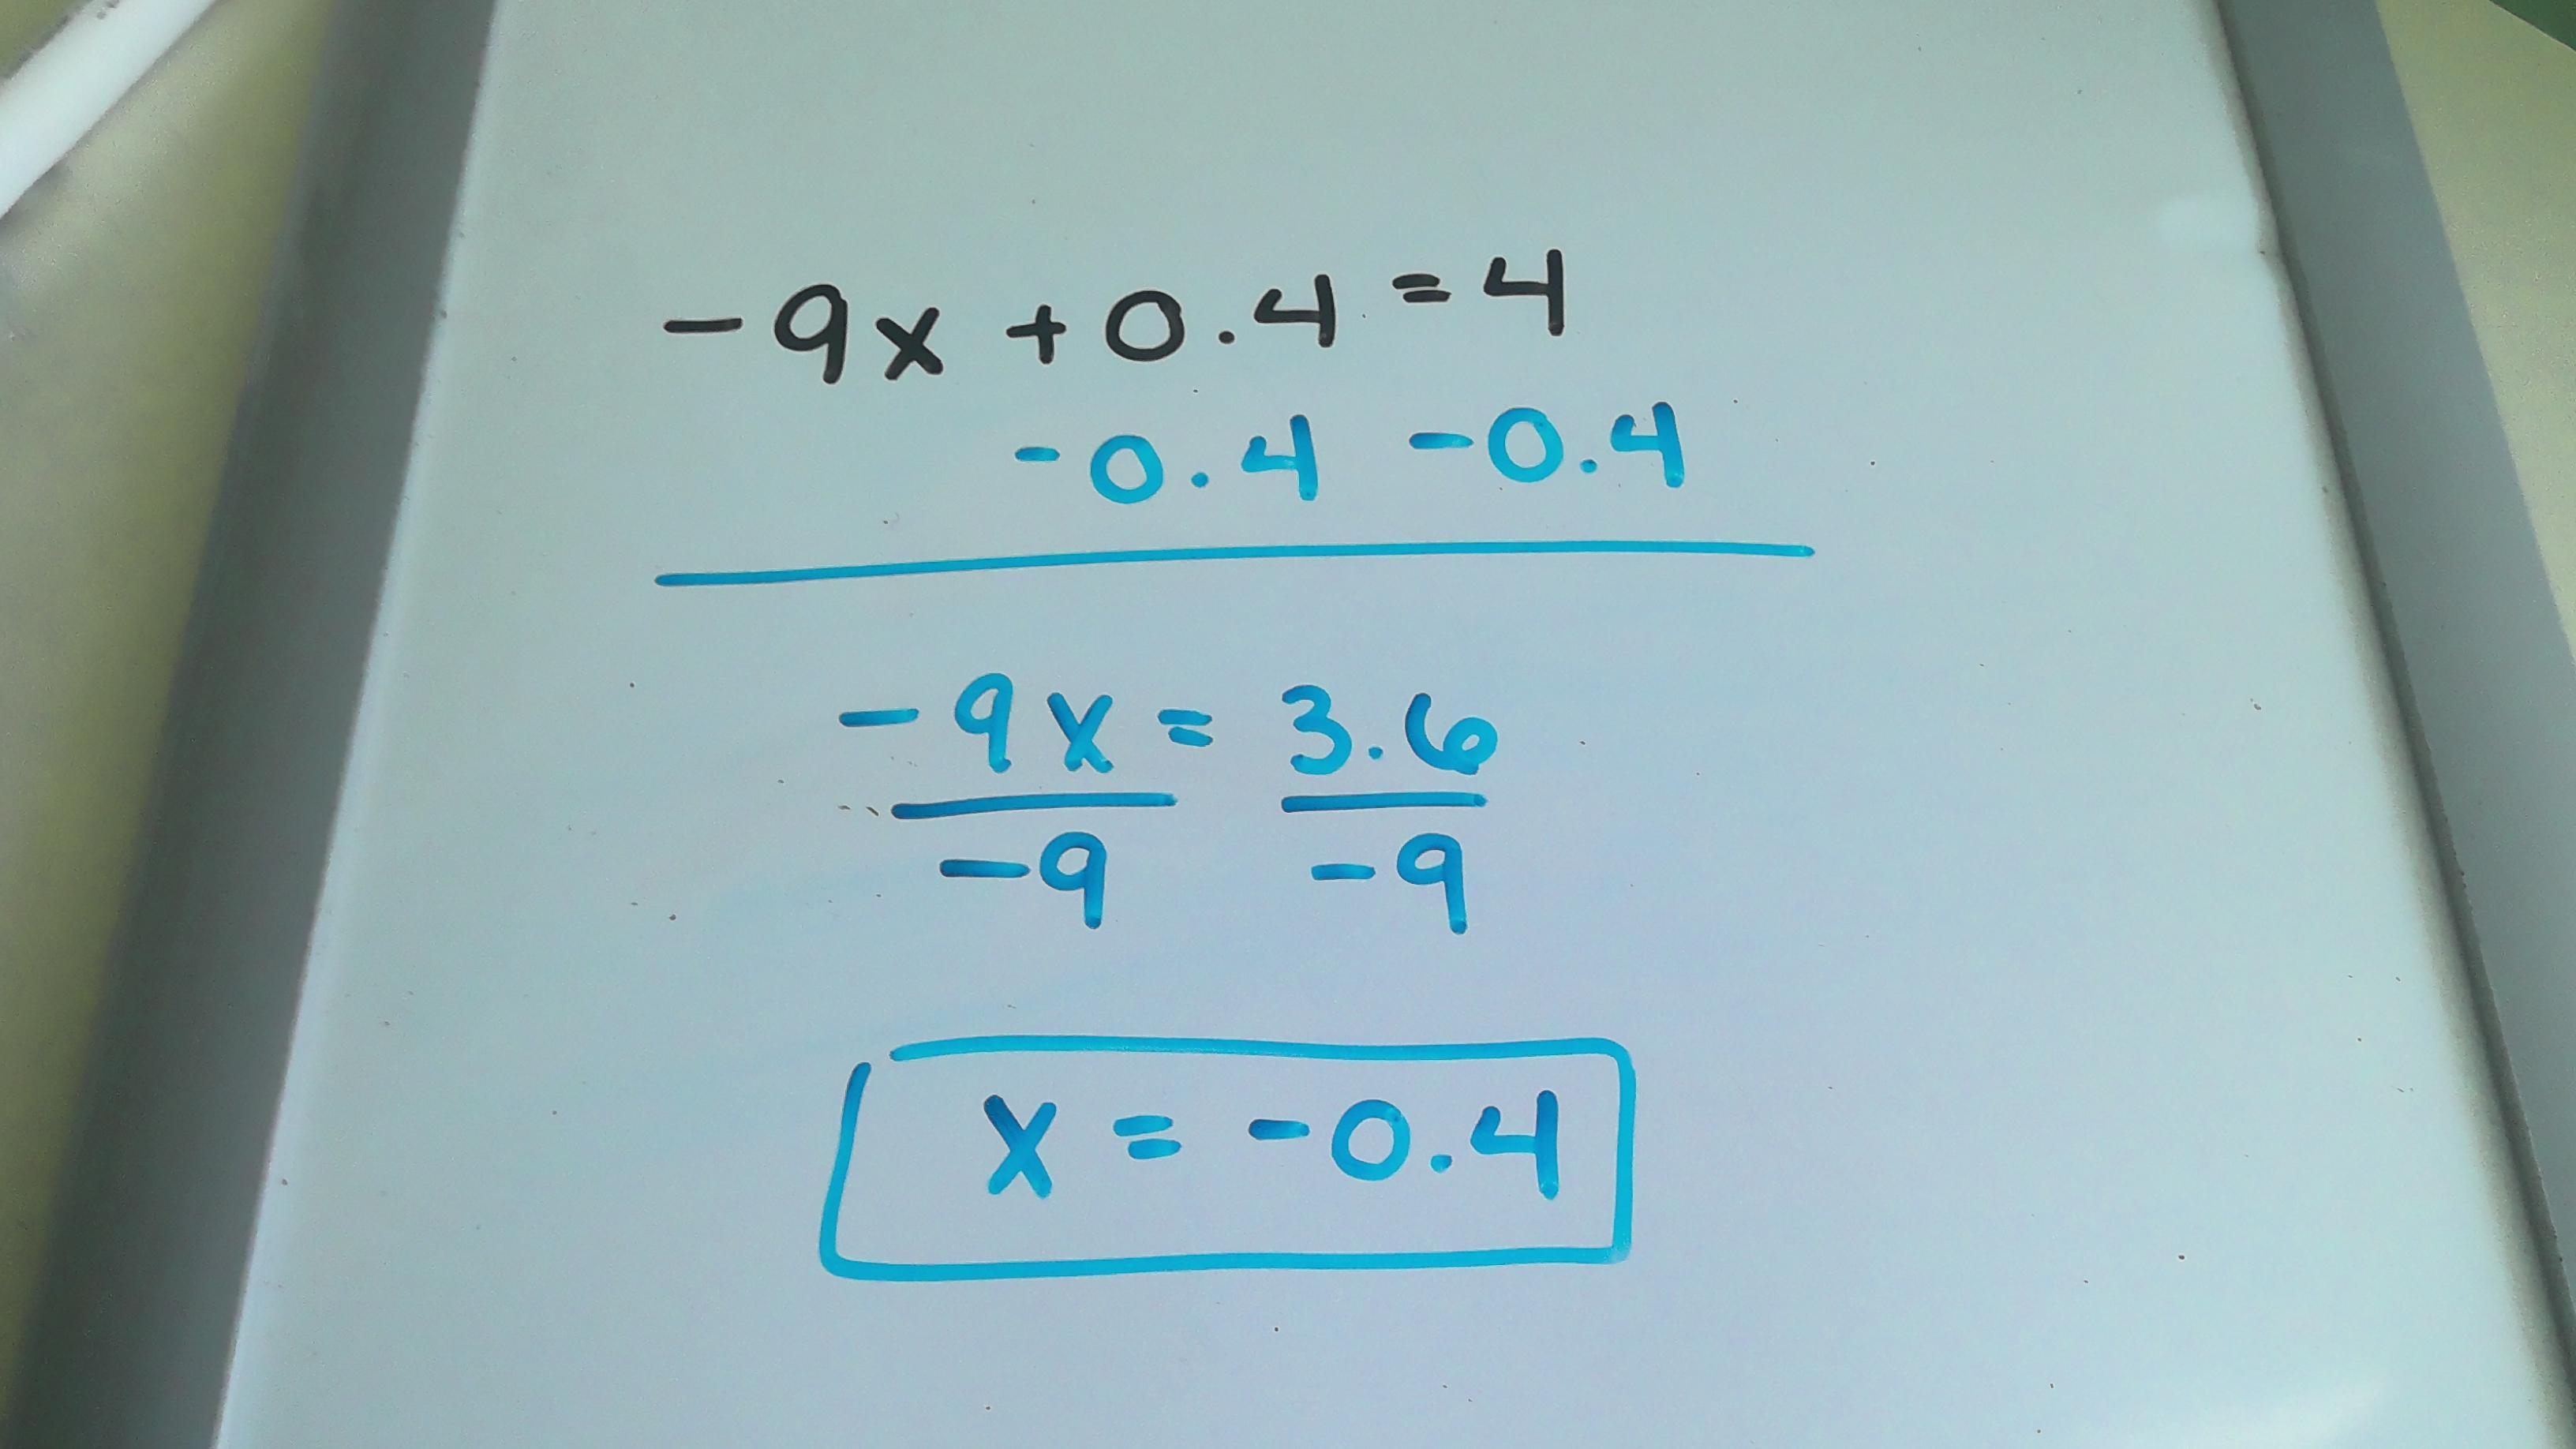 -9x + 0.4 = 4
-0.4 -0.4
-9x = 3.6
-9 -9
x = -0.4